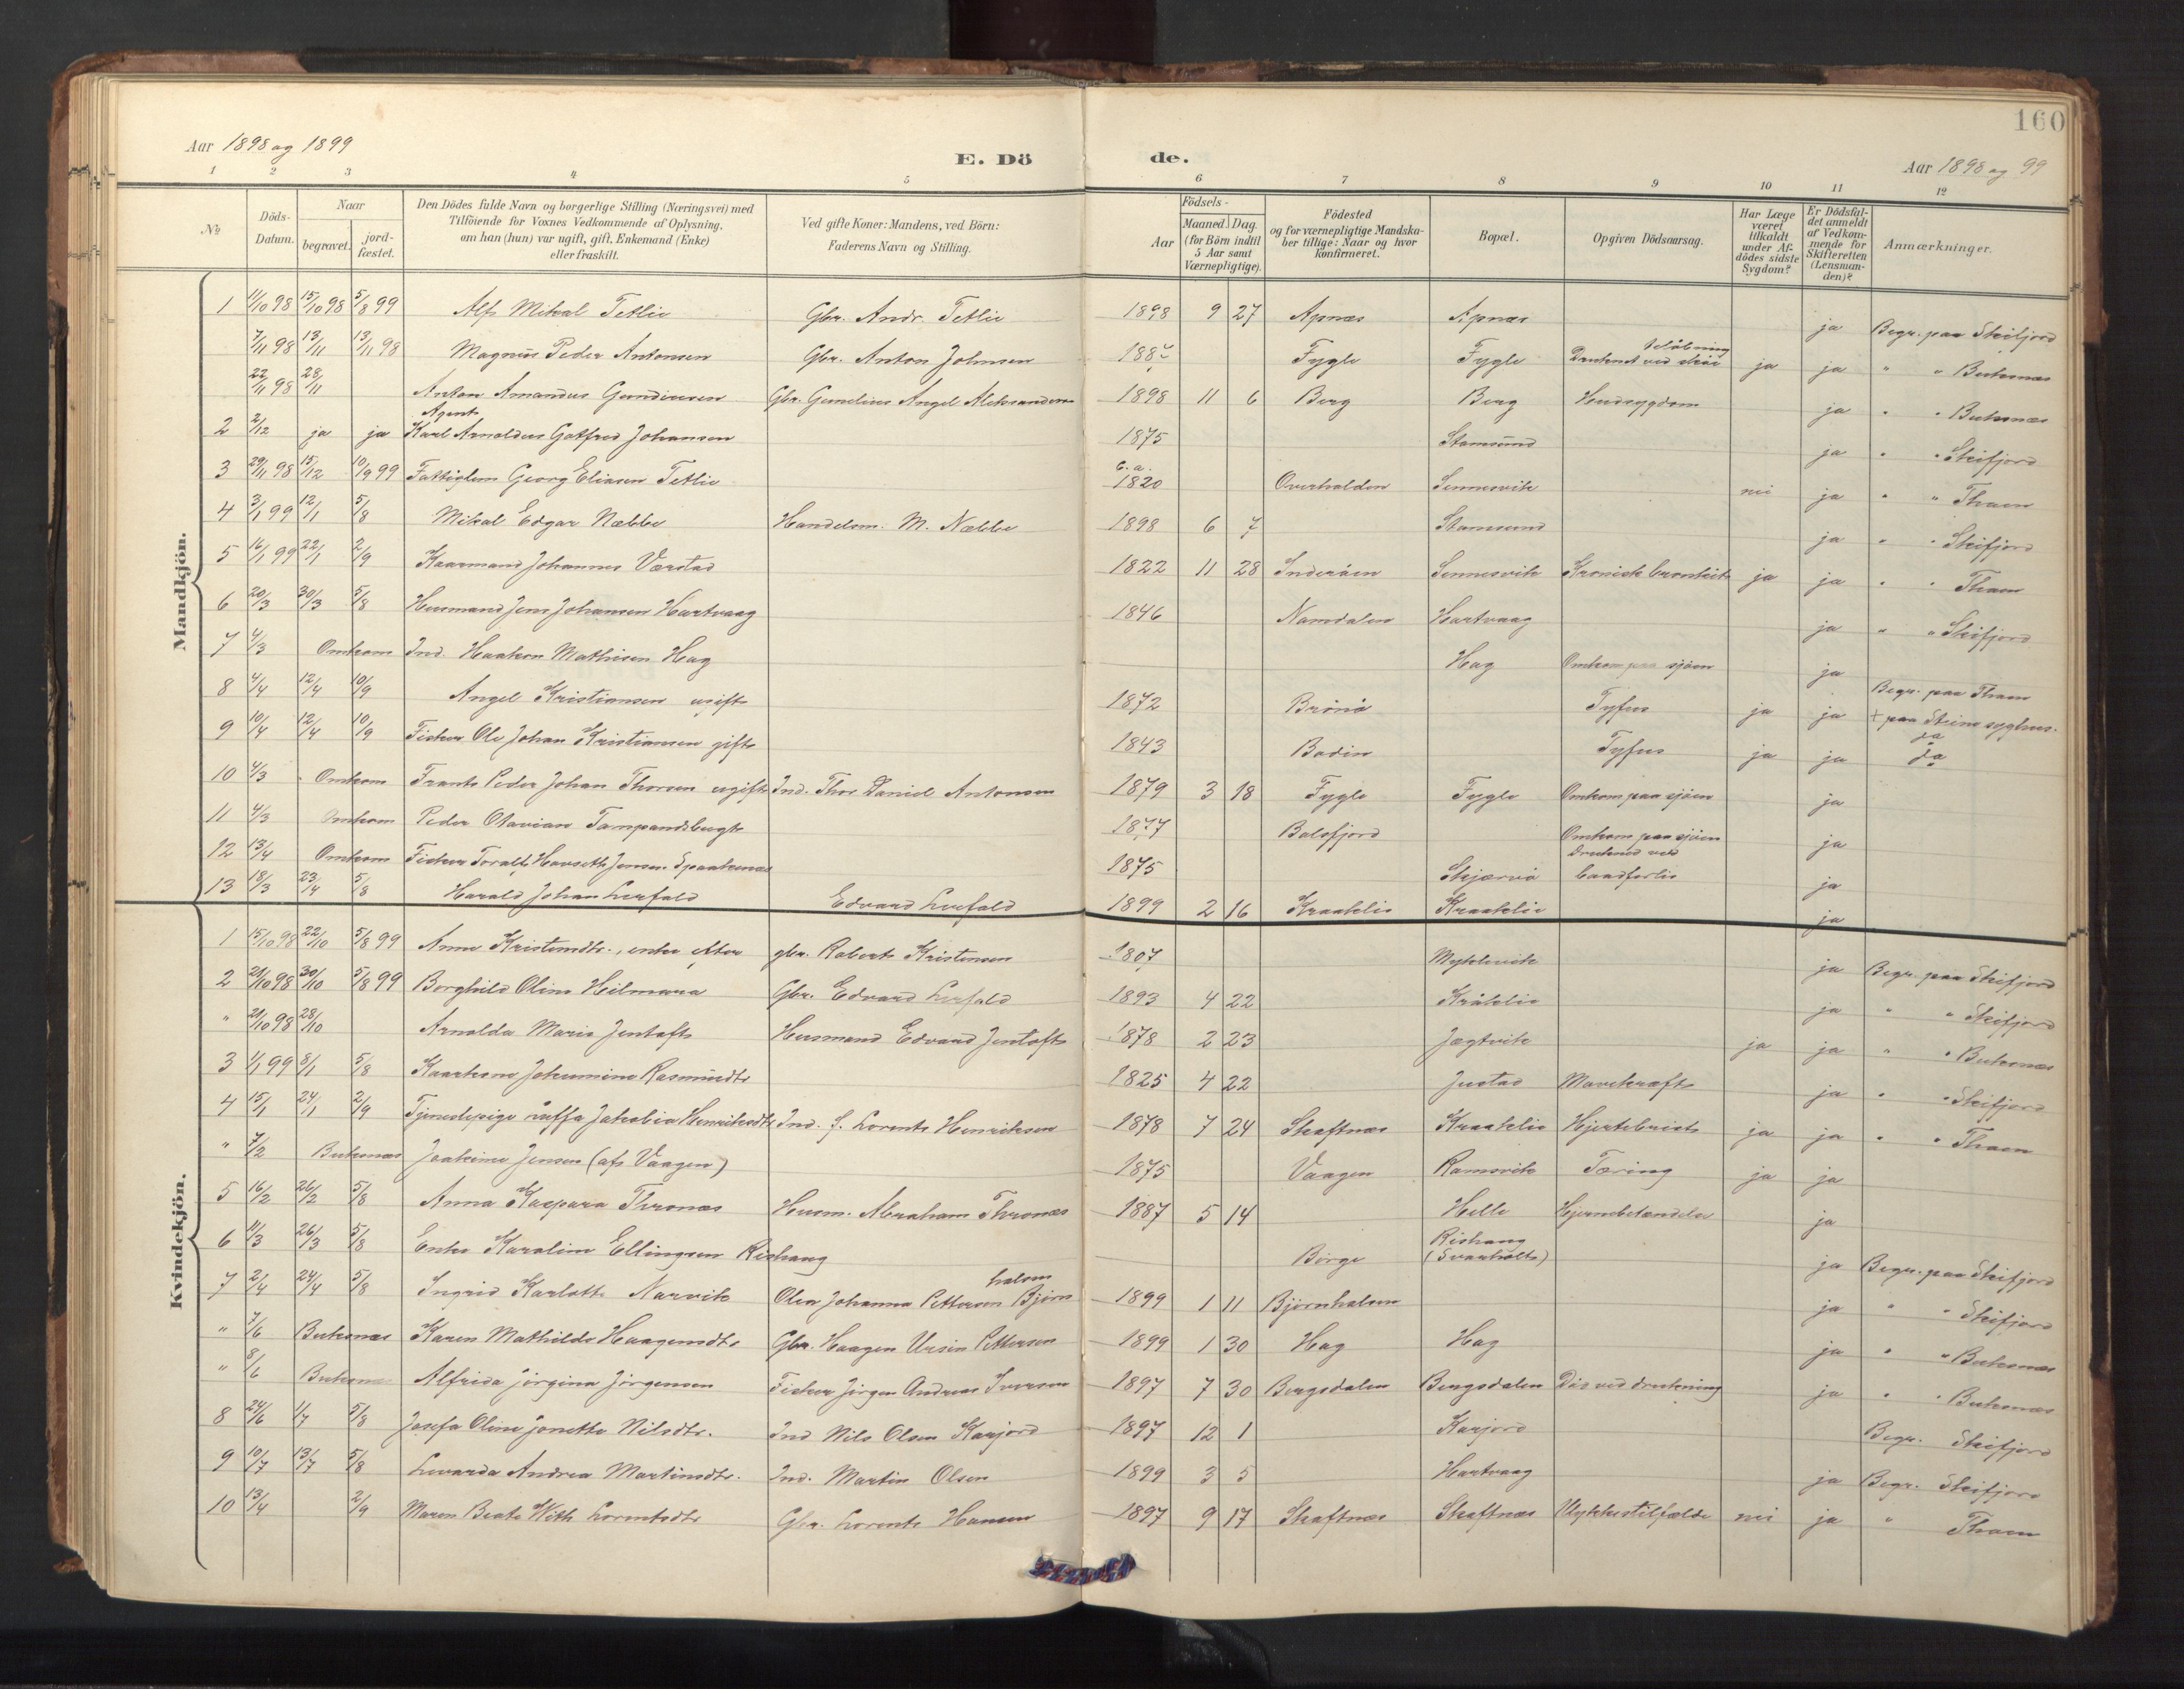 160
Aar 1898 og 1899
E. Dö
de.
Aar 1898 og 99
1 2 3 4 5 6 7 8 9 10 11 12
№
Döds-Datum.
Naar
begravet.
jord-fæstet.
Den Dödes fulde Navn og borgerlige Stilling (Næringsvei) med
Tilföiende for Voxnes Vedkommende af Oplysning,
om han (hun) var ugift, gift, Enkemand (Enke)
eller fraskilt.
Ved gifte Koner: Mandens, ved Börn:
Faderens Navn og Stilling.
Födsels-
Aar
Maaned. Dag.
(for Börn indtil
5 Aar samt
Værnepligtige).
Födested
og for værnepligtige Mandska-
ber tillige: Naar og hvor
konfirmeret.
Bopæl.
Opgiven Dödsaarsag.
Har Læge
været
tilkaldt
under Af-
dödes sidste
Sygdom?
Er Dödsfal-
det anmeldt
af Vedkom-
mende for
Skifteretten
(Lensman-
den)?
Anmærkninger.
Mandkjön.
1 11/10 98 15/10 98 5/8 99 Alf Mikal Tetlie Gbr. Andr. Tetlie 1898 9 27 Apnæs Apnæs ja Begr. paa Skifjord
7/11 98 13/11 13/11 98 Magnus Peder Antonsen Gbr. Anton Johnsen Fygle Fygle Druknet ved ja ja " " Buksnæs
22/11 98 28/11 Anton Amandus Gundiusen Gbr. Angel Aleksandersen 1898 11 6 Berg Berg Hudsygdom ja " " Buksnæs
Agent
2 2/12 ja ja Karl Arnoldus Gotfred Johansen 1875 Stamsund ja " " Skifjord
3 29/11 98 15/12 10/9 99 Fattiglem Georg Eliasen Tetlie c. a. 1820 Overhalden Sennesvik nei ja " " Thaen
4 3/1 99 12/1 5/8 Mikal Edgar Næbbe Handelsm. M. Næbbe 1898 6 7 Stamsund ja " " Skifjord
5 16/1 99 22/1 2/9 Kaarmand Johannes Værstad 1822 11 28 Inderöen Sennesvik Kronisk bronkit ja ja " " Thaen
6 20/3 30/3 5/8 Husmand Jens Johansen Hartvaag 1846 Namdalen Hartvaag ja " " Skifjord
7 4/3 Omkom Ind. Haakon Mathisen Hag Hag Omkom paa sjöen ja
8 4/4 12/4 10/9 Angel Kristiansen ugift 1872 Brönö Tyfus ja ja Begr. paa Thaen
+ paa Stene syghus.
9 10/4 12/4 10/9 Fisker Ole Johan Kristiansen gift 1843 Bodin Tyfus ja ja do do
10 4/3 Omkom Frants Peder Johan Thorsen ugift Ind. Thor Daniel Antonsen 1879 3 18 Fygle Fygle Omkom paa sjöen ja
11 4/3 Omkom Peder Otavian 1877 Balsfjord Omkom paa sjöen ja
12 13/4 Omkom Fisker Toralf Havseth Jensen Spaakenæs 1875 Skjærvö druknet ved baadforlis ja
13 18/3 23/4 5/8 Harald Johan Lerfald Edvard Lerfald 1899 2 16 Kraaklie Kraaklie ja
Kvindekjön.
1 15/10 98 22/10 5/8 99 Anne Kristensdtr., enke efter gbr. Robert Kristensen 1807 Myklevik ja Begr. paa Skifjord
2 21/10 98 30/10 5/8 99 Borghild Oline Hilmara Gbr. Edvard Lerfald 1893 4 22 Kråklie ja " " Skifjord
" 21/10 98 28/10 Arnolda Marie Jentoft Husmand Edvard Jentoft 1878 2 23 Jægtvik ja ja " " Buksnæs
3 1/1 99 8/1 5/8 Kaarkone Jokumine Rasmusdtr 1825 4 22 Justad Mavekræft ja " " Skifjord
4 15/1 24/1 2/9 Tjenestepige Jakobia Henriksdtr Ind. J. Lorents Henriksen 1878 7 24 Skaftnæs Kraaklie Hjertebrist ja ja " " Thaen
" 7/2 Buksnæs Joakime Jensen (af Vaagen) 1875 Vaagen Ramsvik Tæring ja ja
5 16/2 26/2 5/8 Anna Kaspara Thronæs Husm. Abraham Thronæs 1887 5 14 Helle Hjernebetændelse ja
6 11/3 26/3 5/8 Enke Karoline Ellingsen Rishaug Börge Rishaug (Svarholt) ja Begr. paa Skifjord
7 2/4 24/4 5/8 Ingrid Karlotte Narvik Olea Johanna Pettersen Björn-halsen 1899 1 11 Björnhalsen ja " " Skifjord
" 7/6 Buksnæs Karen Mathilde Haagensdtr Gbr. Haagen Ursin Pettersen 1899 1 30 Hag Hag ja " " Buksnæs
" 8/6 Buksnæs Alfrida Jörgina Jörgensen Fisker Jörgen Andreas Iversen 1897 7 30 Bergsdalen Bergsdalen Död ved drukning ja " " Buksnæs
8 24/6 1/7 5/8 Josefa Oline Jonette Nilsdtr. Ind Nils Olsen Karjord 1897 12 1 Karjord Begr. Skifjord
9 10/7 13/7 5/8 Lovarda Andrea Martinsdtr. Ind. Martin Olsen 1899 3 5 Hartvaag ja Begr. Skifjord
10 13/4 2/9 Maren Beate With Lorentsdtr Gbr. Lorents Hansen 1897 9 17 Skaftnæs Skaftnæs Ulykkestilfælde nei ja " Thaen